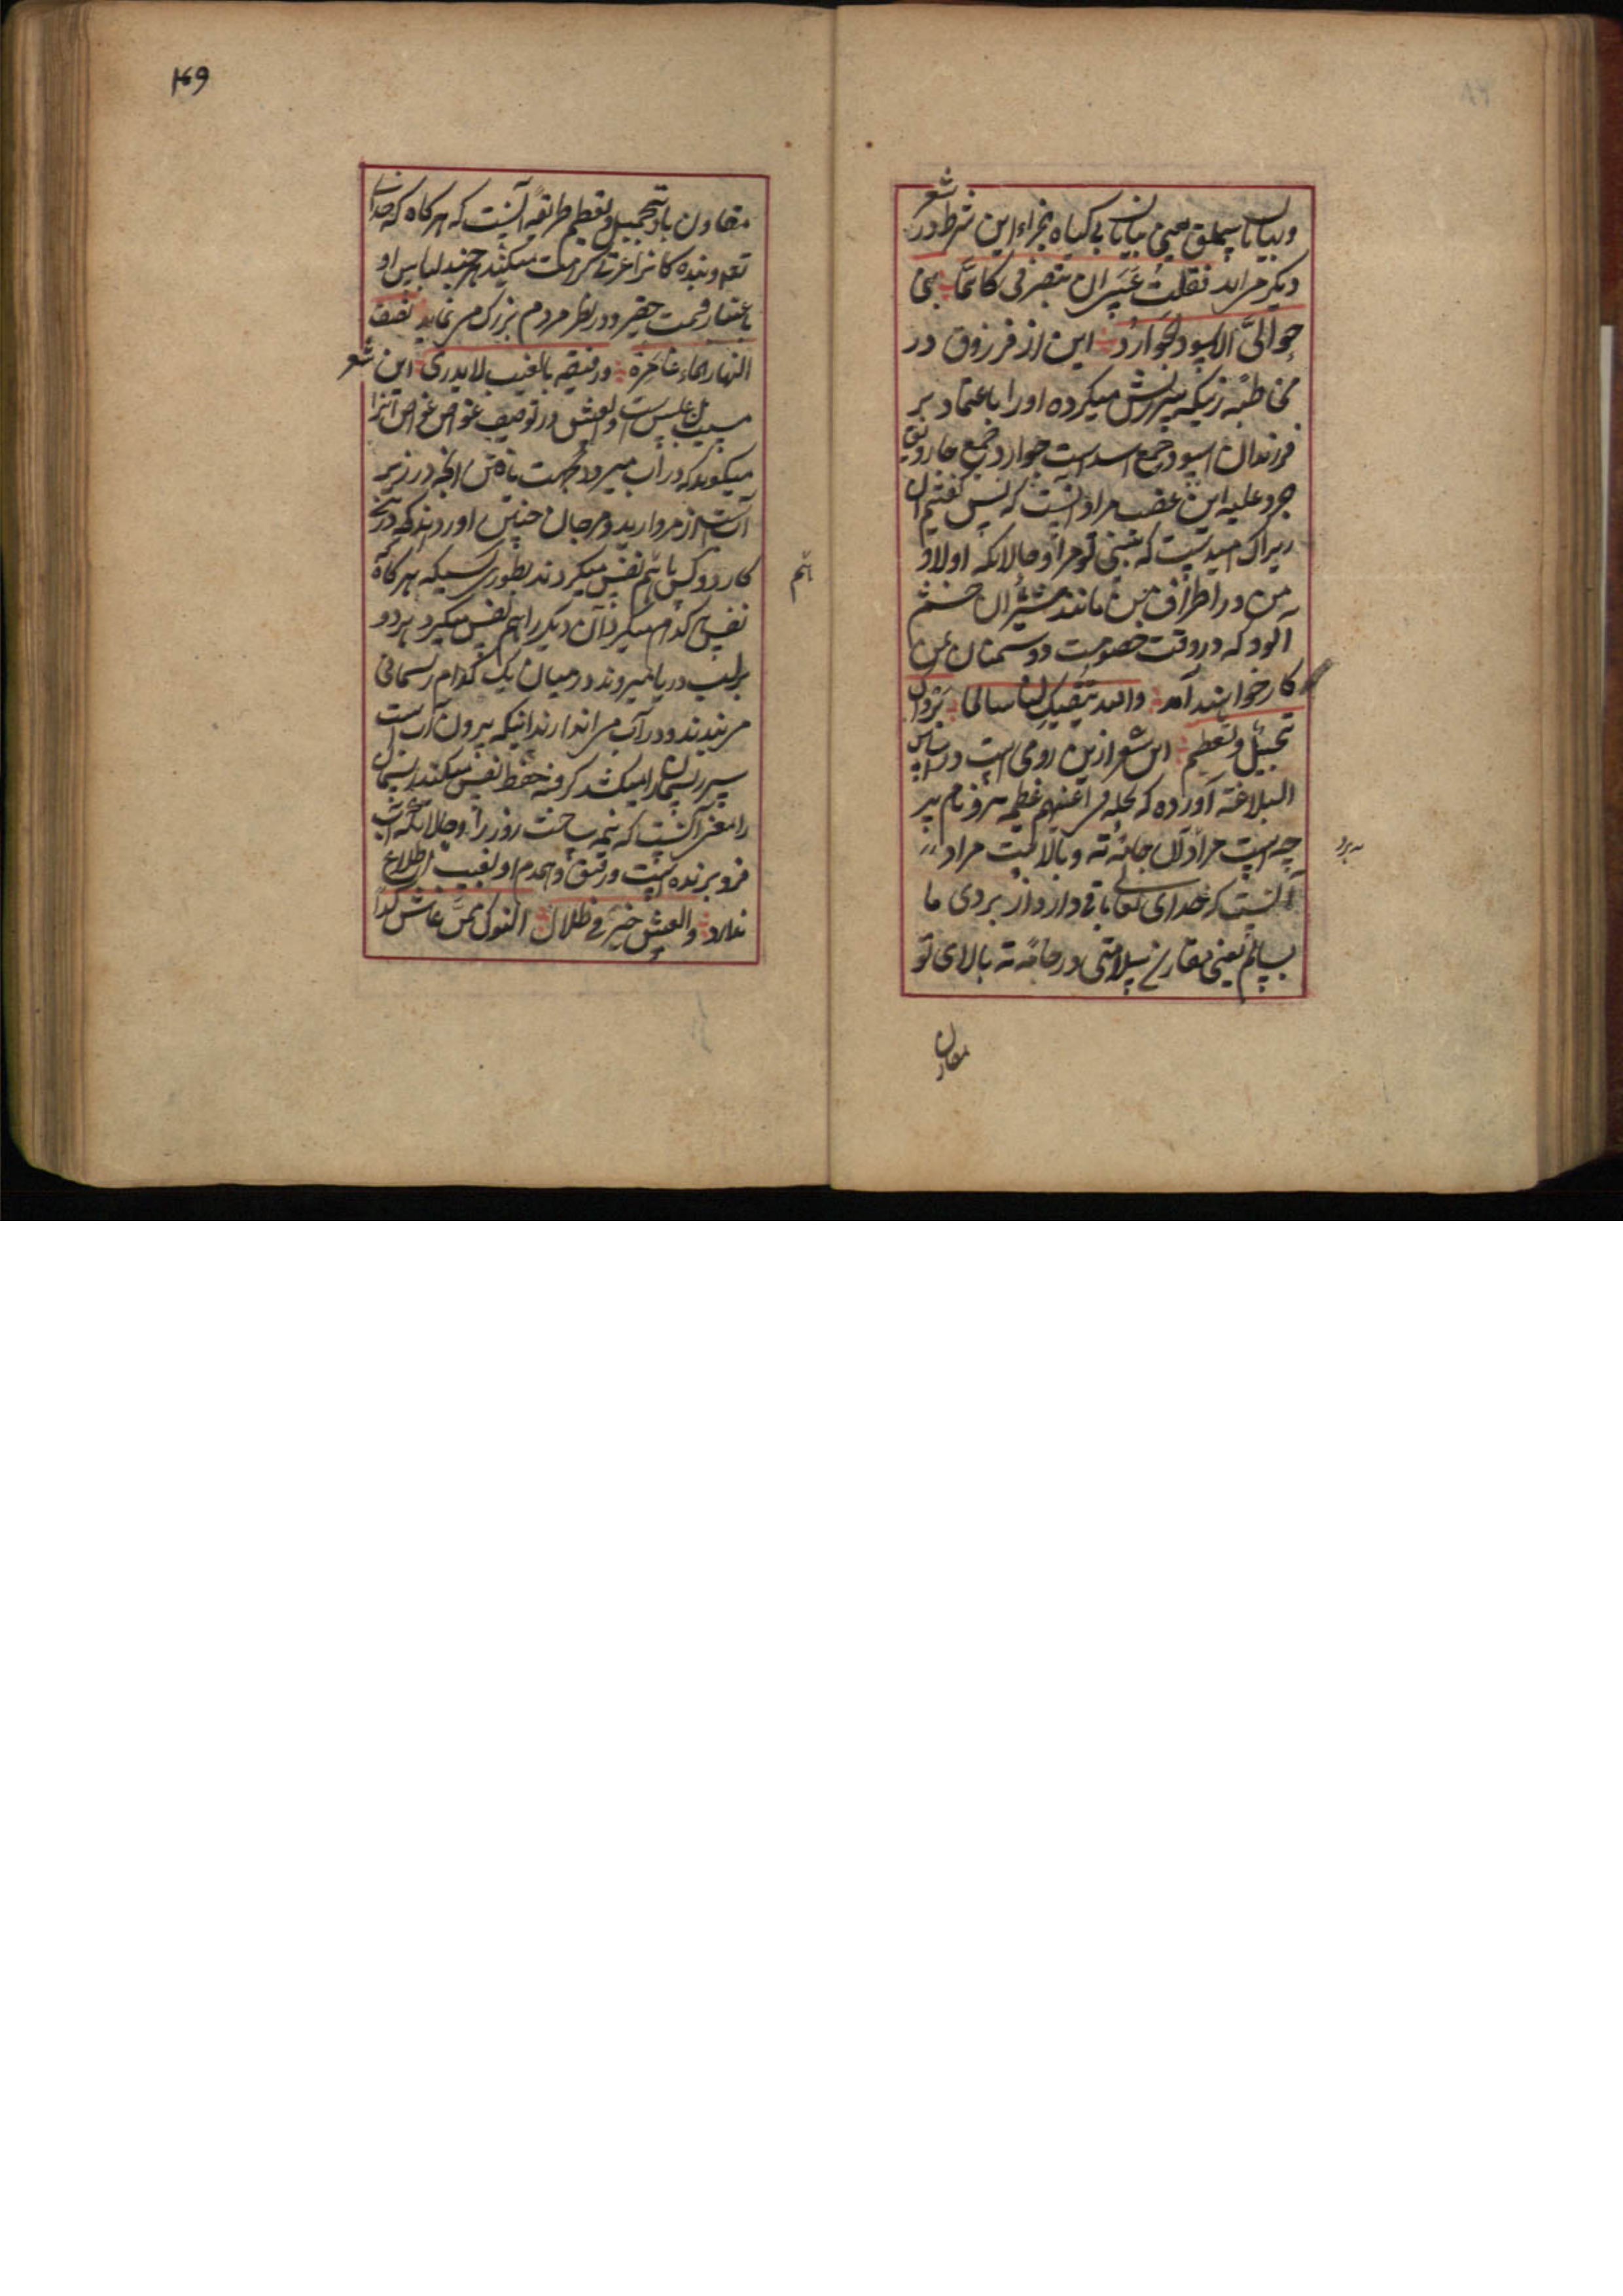 وبیابان سملق یعنی بیابان بی کیاه بجزاء این شرط در شعر
دیکر مراید فقلت عسی ان تبصرنی کانما بنی
حوالیّ الاسود الحوارد این از فرزوق در
مخاطبه زنیکه سرزنش میکرده اورا باعتماد بر
فرزندان اسود جمع اسد است حوارد جمع حارد
حرد علیه ای غضب مراد انیست که پس کفتم ان
زیراکه امیدیست که ببینی تو مرا و حالانکه اولاد
من در اطراف من مانند شیران خشم
آلود که در وقت خصومت دوسمنان من
کار خواهند آمد والله یبقیک لنا سالما بردان
تبجیل وتعظیم این شعر از ابن رومی است در اساس
البلاغة آورده که بجله فی اعینهم عظمه برد نام پر
چه است مراد آن جامه ته وبالا است مراد
آنست که خدای تعالی باقی دارد از بردی ما
سالم یعنی مقارن سلامتی در جامه ته بالای تو
مقارن
ته برد
۱۶۹
مقارن باد تبجیل وتعظیم طریقه آنست که هرکاه که خدای
تعم وبنده کانرا عزت کرامت میکند هرچند لباس او
باعتبار قیمت حقیر ودر نظر مردم بزرک مر نماید نصف
النهار الماء غامره ورفیقه بالغیب لا یدری این شعر
مسیب بن علس است در توصیف غواص غواص آنرا
میکویند که در آب میرود بجهت یافتن آنچه در زیر
آب است از مروارید ومرجان چنین آورده اند که در این
کار دو کس با هم نفس میکردند بطوریکه هرکاه که
نفس هر کدام میکیرد آن دیکر را هم نفس میکیرد هر دو
بر لب دریا میروند در میان یک کدام ریسمانی
مر بندند ودر آب مر اندازند آنیکه بیرون آب است
سر ریسمان را میکشد کرفته حفظ نفس میکند
را معنی آنست که نیمه ساخت روز را وحالانکه آب
فرو برنده است ورفیق وهمدم او بغیب اطلاع
ندارد والعیش خیر فی ظلال النوک ممن عاش کدا
هم